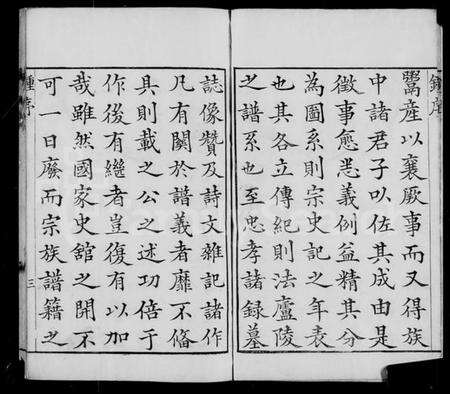 鍾序
鬻產以襄厥事而又得族
中諸君子以佐其成由是
徵事愈悉義例益精其分
為圖系則宗史記之年表
也其各立傳紀則法廬陵
之譜系也至忠孝諸錄墓
誌像贊及詩文雜記諸作
凡有關於譜義者靡不偹
具則載之公之述功倍于
作後有繼者豈復有以加
哉雖然國家史舘之開不
可一日廢而宗族譜籍之
鍾序
三